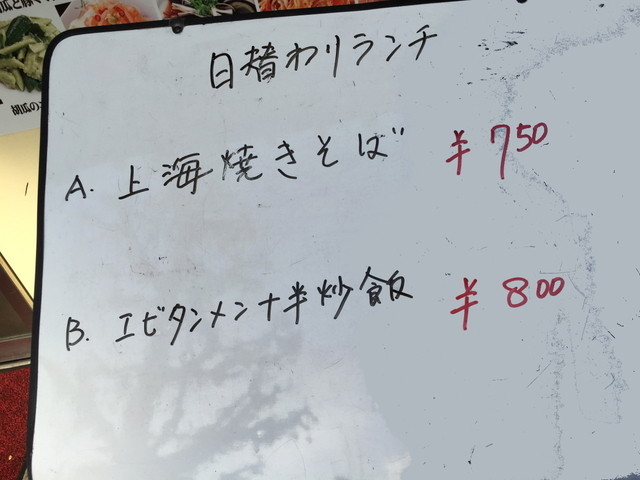 日替わりランチ
A. 上海焼きそば ¥750
B. エビタンメン+半炒飯 ¥800